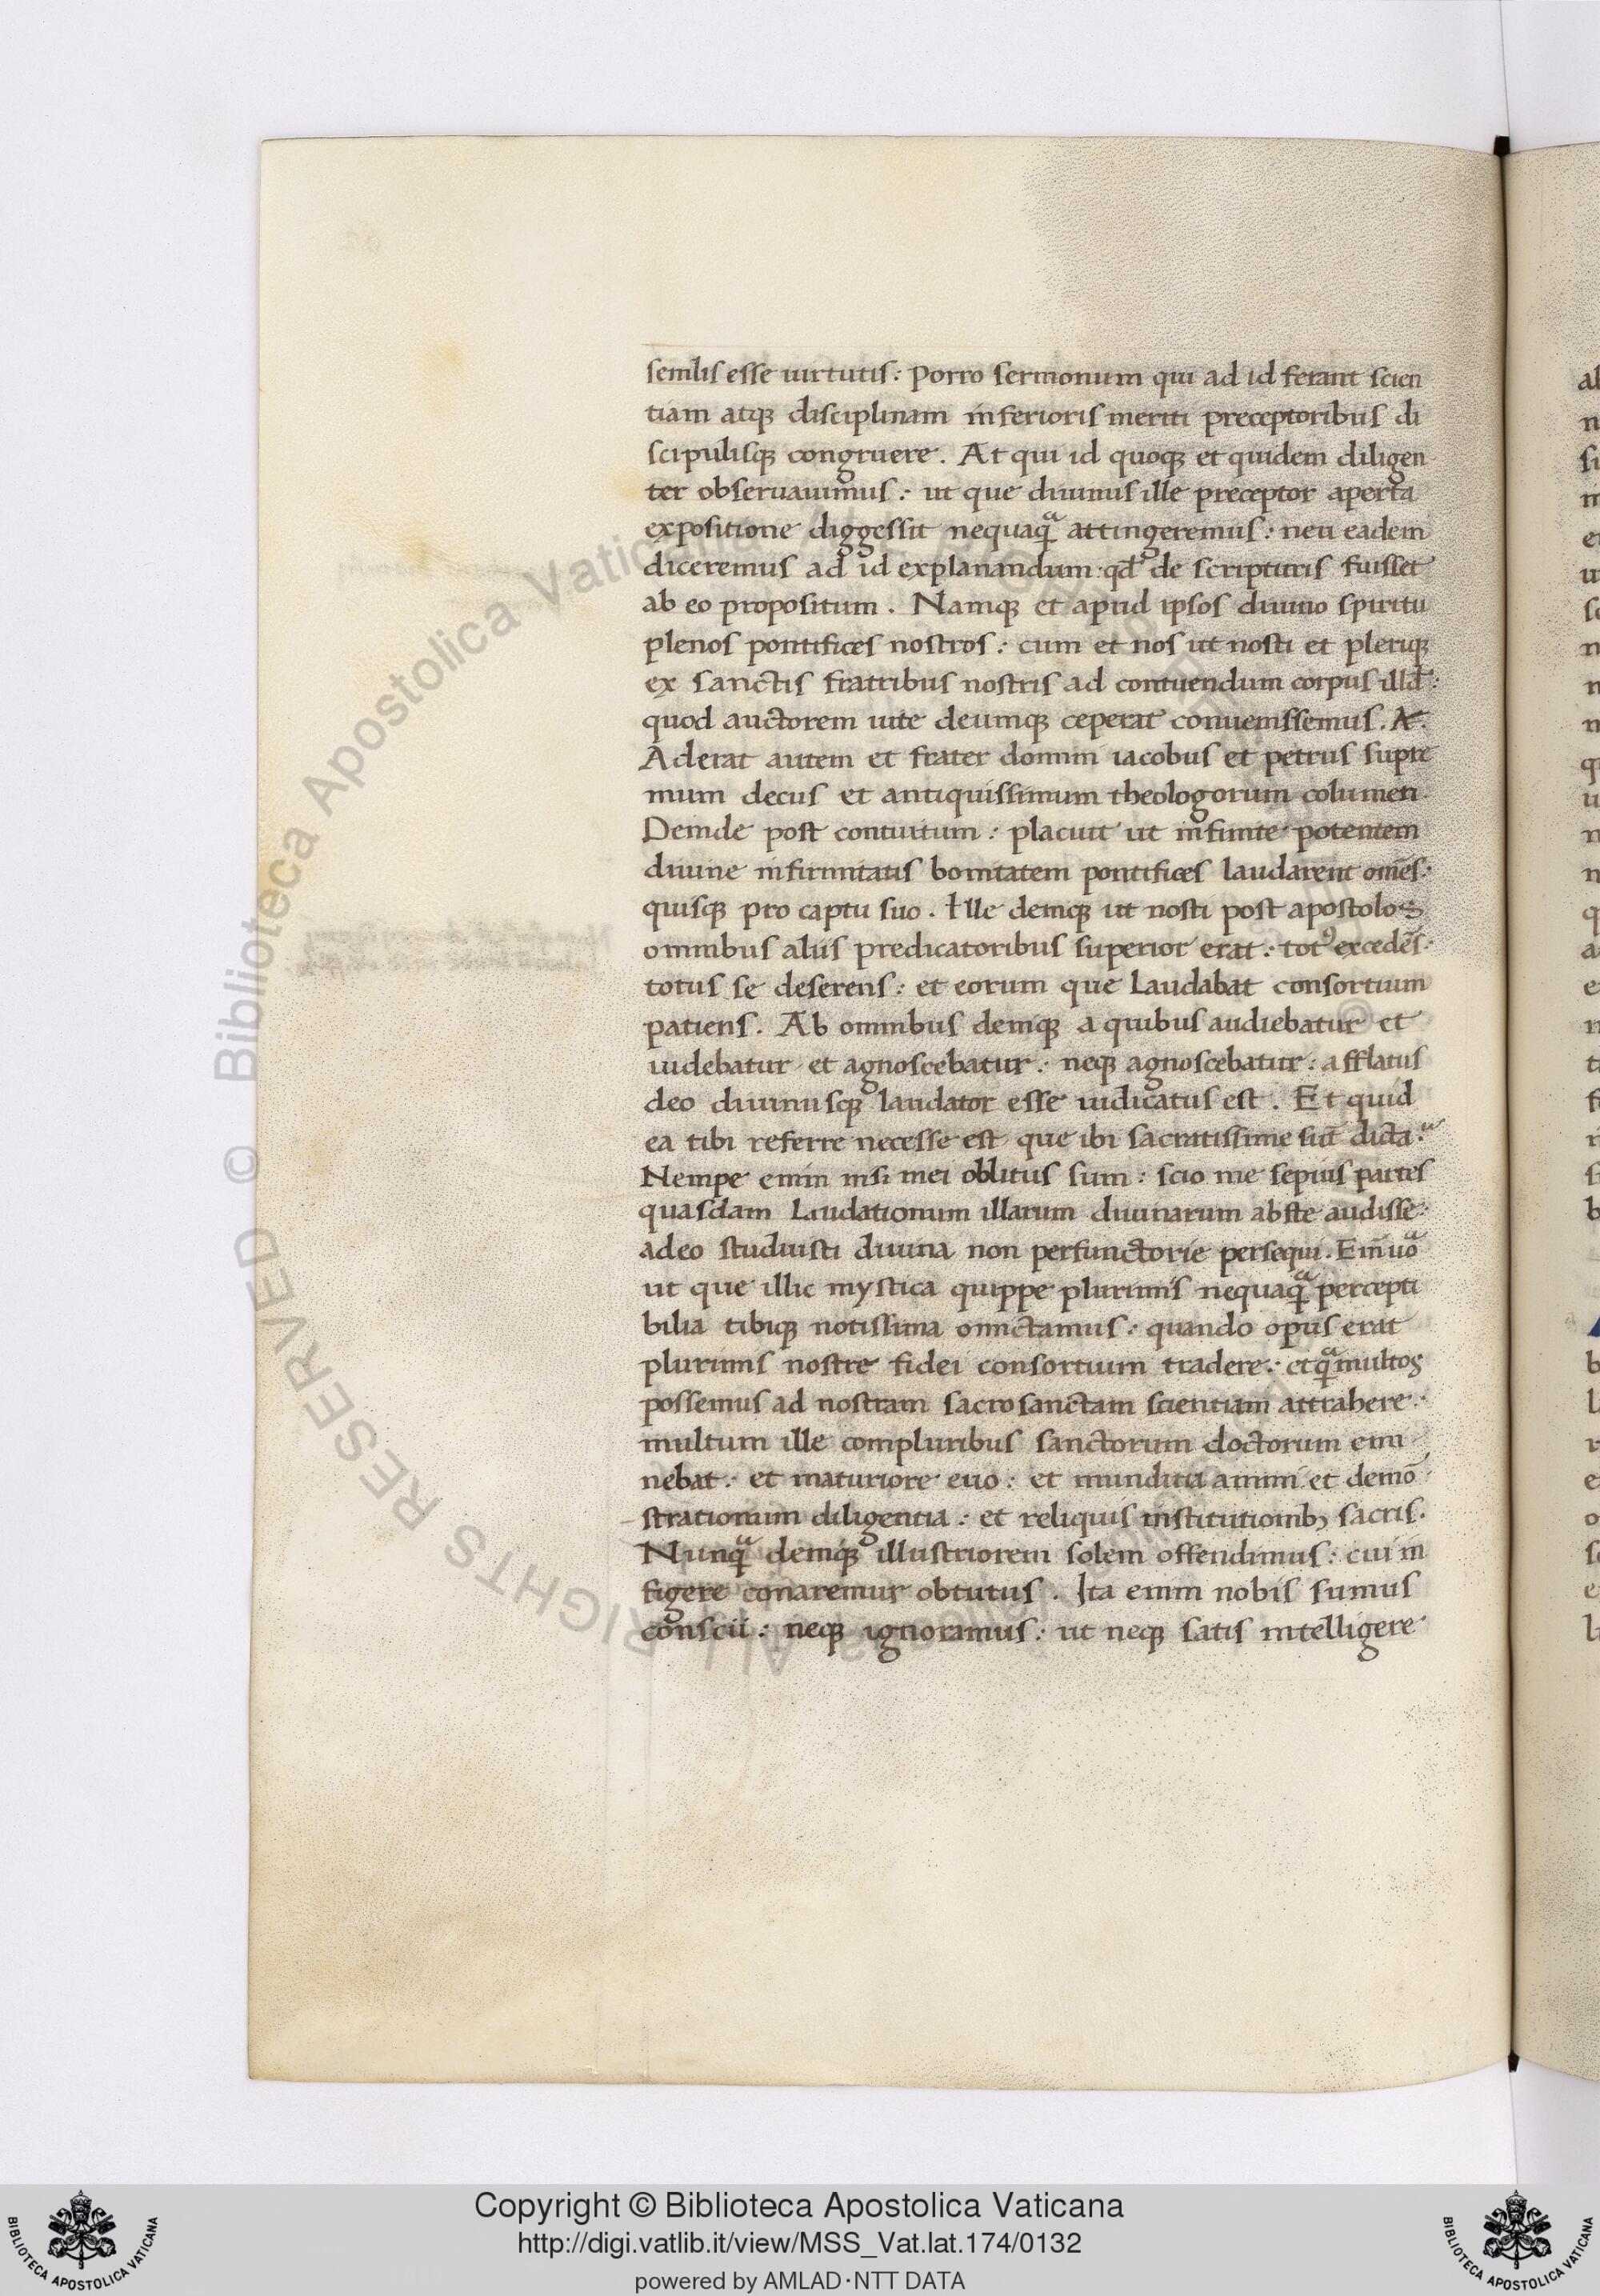 semlis esse uirtutis: Porro sermonum qui ad id ferant scien
tiam atq disciplinam inferioris meriti preceptoribus di
scipulisq congruere. At qui id quoq et quidem diligen
ter obseruauimus: ut que diuinus ille preceptor aperta
expositione diggessit nequaqᵃ attingeremus: neu eadem
diceremus ad id explanandum qd̓ de scripturis fuisset
ab eo propositum. Namq et apud ipsos diuino spiritu
plenos pontifices nostros: cum et nos ut nosti et pleriq
ex sanctis fratribus nostris ad contuendum corpus illd̓:
quod auctorem uite deumq ceperat conuenissemus. A.
Aderat autem et frater domini iacobus et petrus supre
mum decus et antiquissimum theologorum columen.
Deinde post contuitum: placuit ut infinite potentem
diuine infirmitatis bonitatem pontifices laudarent om̄es:
quisq pro captu suo. Ille deniq ut nosti post apostolos
omnibus aliis predicatoribus superior erat: totꝰ excedēs:
totus se deserens: et eorum que laudabat consortium
patiens. Ab omnibus deniq a quibus audiebatur et
uidebatur et agnoscebatur: neq agnoscebatur: afflatus
deo diuinusq laudator esse iudicatus est. Et quid
ea tibi referre necesse est que ibi sacratissime sūt dicta:
Nempe enim nisi mei oblitus sum: scio me sepius partes
quasdam laudationum illarum diuinarum abste audisse:
adeo studuisti diuina non perfunctorie persequi. Em̄uᵒ
ut que illic mystica quippe plurimis nequaqᵃ percepti
bilia tibiq notissima omictamus: quando opus erat
plurimis nostre fidei consortium tradere: et qᵃ multos
possemus ad nostram sacrosanctam scientiam attrahere:
multum ille compluribus sanctorum doctorum emi
nebat: et maturiore euo: et munditia animi et demō
strationum diligentia: et reliquis institutionibꝫ sacris.
Nunqᵃ deniq illustriorem solem offendimus: cui in
figere conaremur obtutus. Ita enim nobis sumus
conscii: neq ignoramus: ut neq satis intelligere
© Biblioteca Apostolica Vaticana
ALL RIGHTS RESERVED
Copyright © Biblioteca Apostolica Vaticana
http://digi.vatlib.it/view/MSS_Vat.lat.174/0132
powered by AMLAD·NTT DATA
BIBLIOTECA APOSTOLICA VATICANA
BIBLIOTECA APOSTOLICA VATICANA